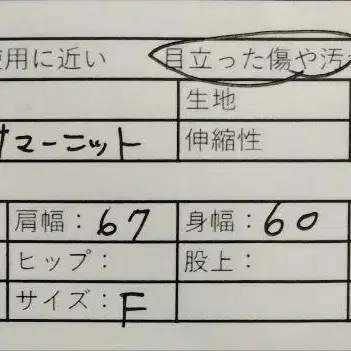 使用に近い 目立った傷や汚
生地
サマーニット 伸縮性
肩幅：67 身幅：60
ヒップ： 股上：
サイズ：F